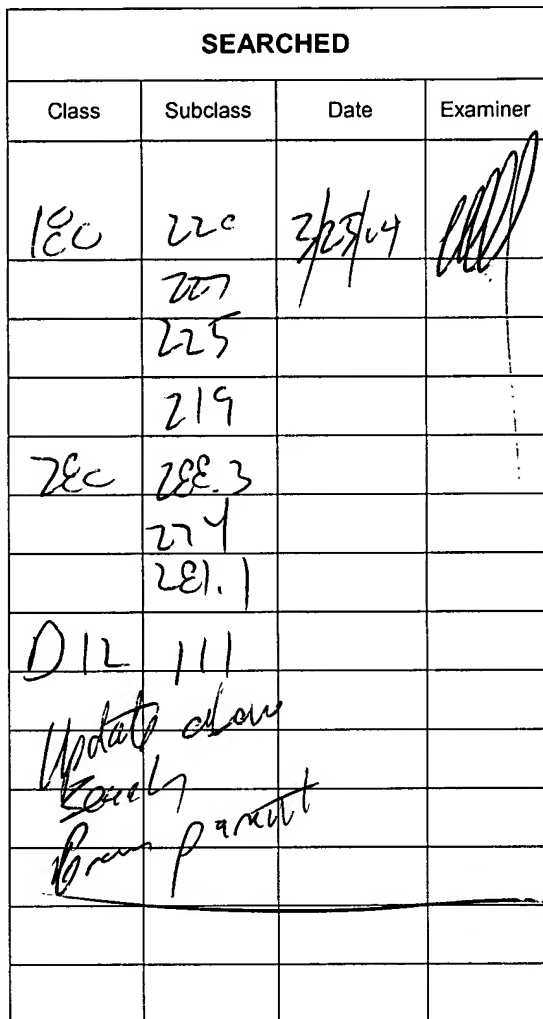 SEARCHED
Class Subclass Date Examiner
180 220 3/23/04
227
225
219
280 288.3
274
281.1
D12 111
Update above
Search
From parent